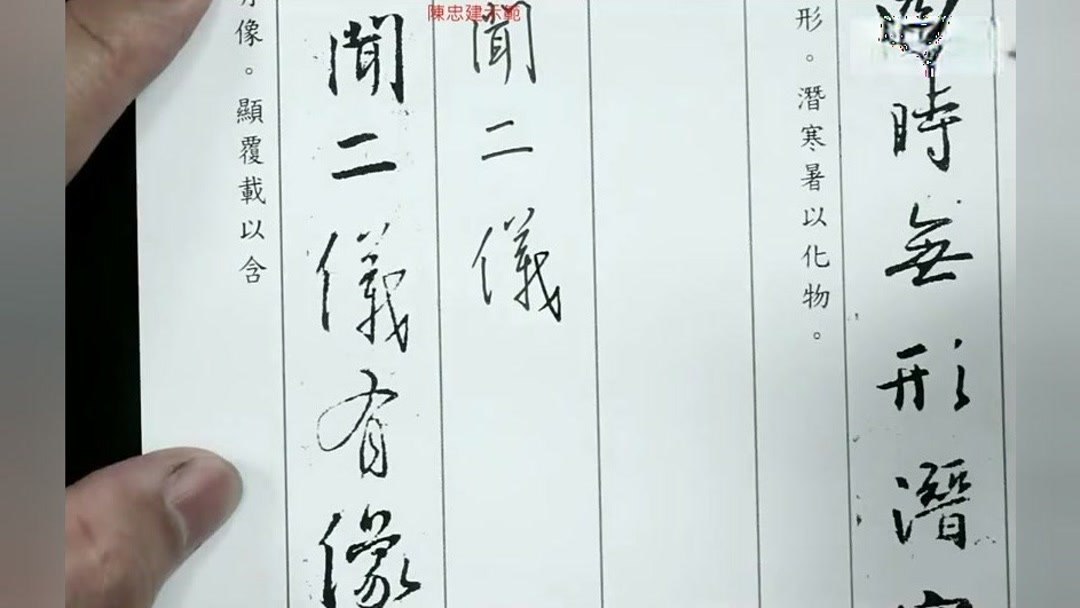 陳忠建示範
時無形潛
形。潛寒暑以化物。
聞二儀
聞二儀有像
像。顯覆載以含